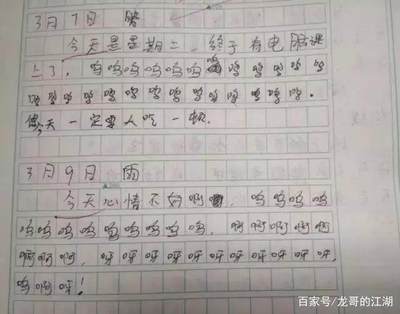 3月7日 晴
今天是星期二,终于有电脑课
上了,呜呜呜呜呜呜呜呜呜呜呜呜
呜呜呜呜呜呜呜呜呜呜呜呜呜呜。
天一定要人吃一顿。
3月9日 雨
今天心情不好啊,呜呜呜呜
呜呜呜呜呜呜呜呜呜呜,啊啊啊啊啊
啊啊啊,呀呀呀呀呀呀呀呀呀呀,
呜啊呀!
百家号/龙哥的江湖